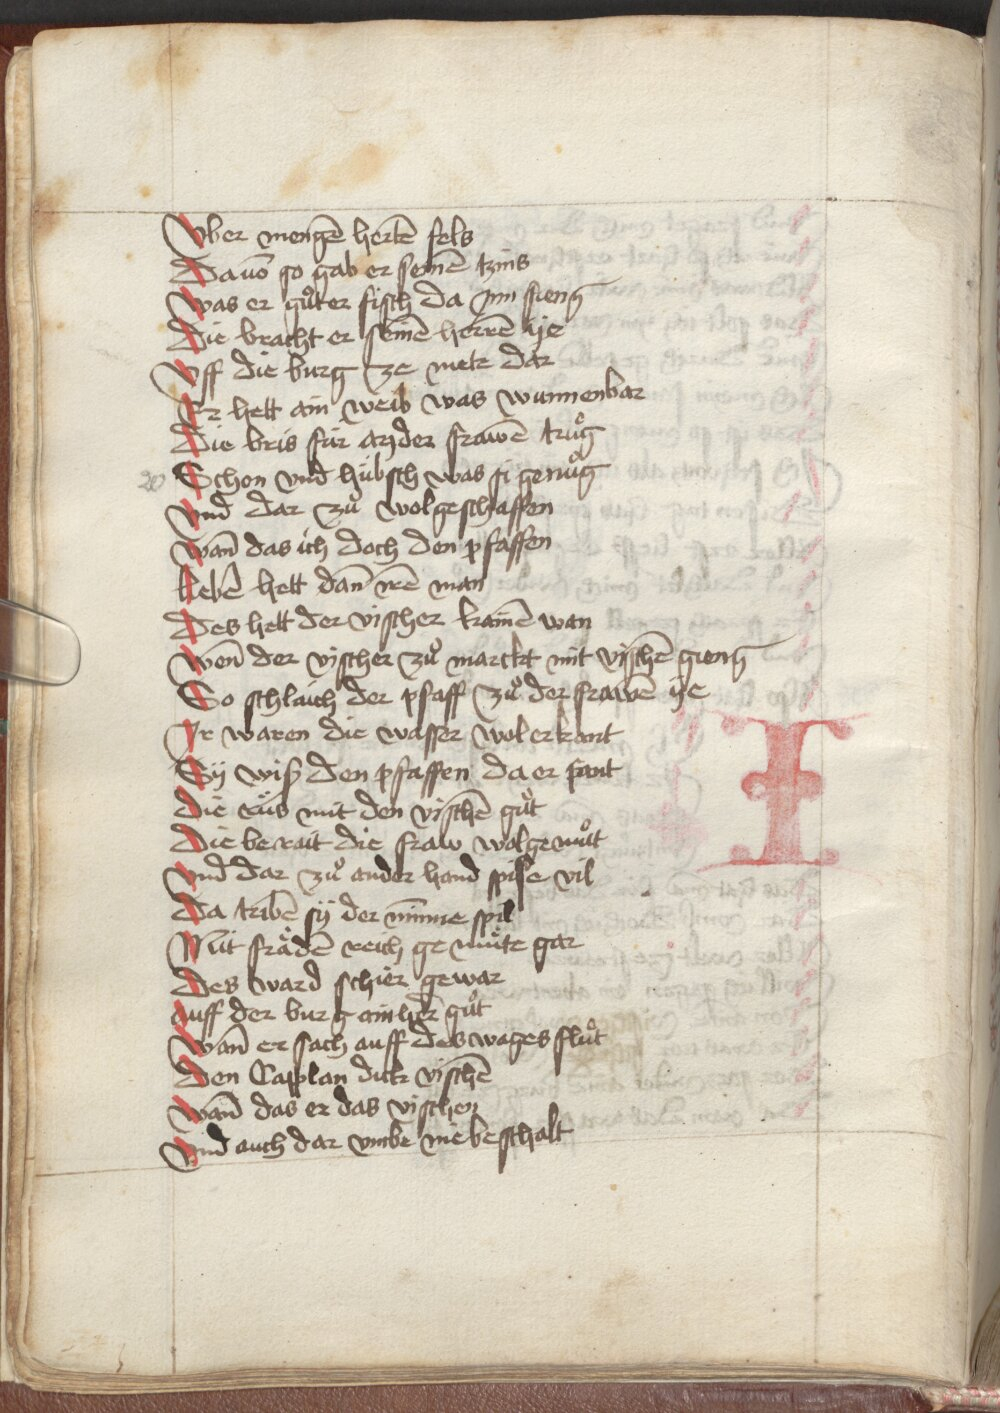 Vber mengē hertē fels
Da uō so gab er seinē tzins
Was er gůter fisch da jnn fieng
Die bracht er seinē herrē ye
Vff die burg ze metz dar
Er hett ain weib was wunnenbar
Die bris für ander frawē trůg
20 Schon vnd hübsch was si genůg
Vnd dar zů wolgeschaffen
Wan̄ das ich doch den pfaffen
Liebē hett dan̄ irē man
Des hett der vischer kainē wan
Wen̄ der vischer zů marckt mit vischē gieng
So schlaich der pfaff zů der frawē ye
Jr waren die wasser wol erkant
Sy wiß den pfaffen da er fant
Die rüs mit den vischē gůt
Die berait die fraw wolgemůt
Vnd dar zů ander hand spise vil
Da tribē sy der minne spil
Mit frädē reich gemůte gar
Des ward schier gewar
Auff der burg ain herr gůt
Wan̄ er sach auff des wages flůt
Den Caplan dick vischē
Wan̄ das er das vischen
Vnd auch dar vmbe nie beschalt
I